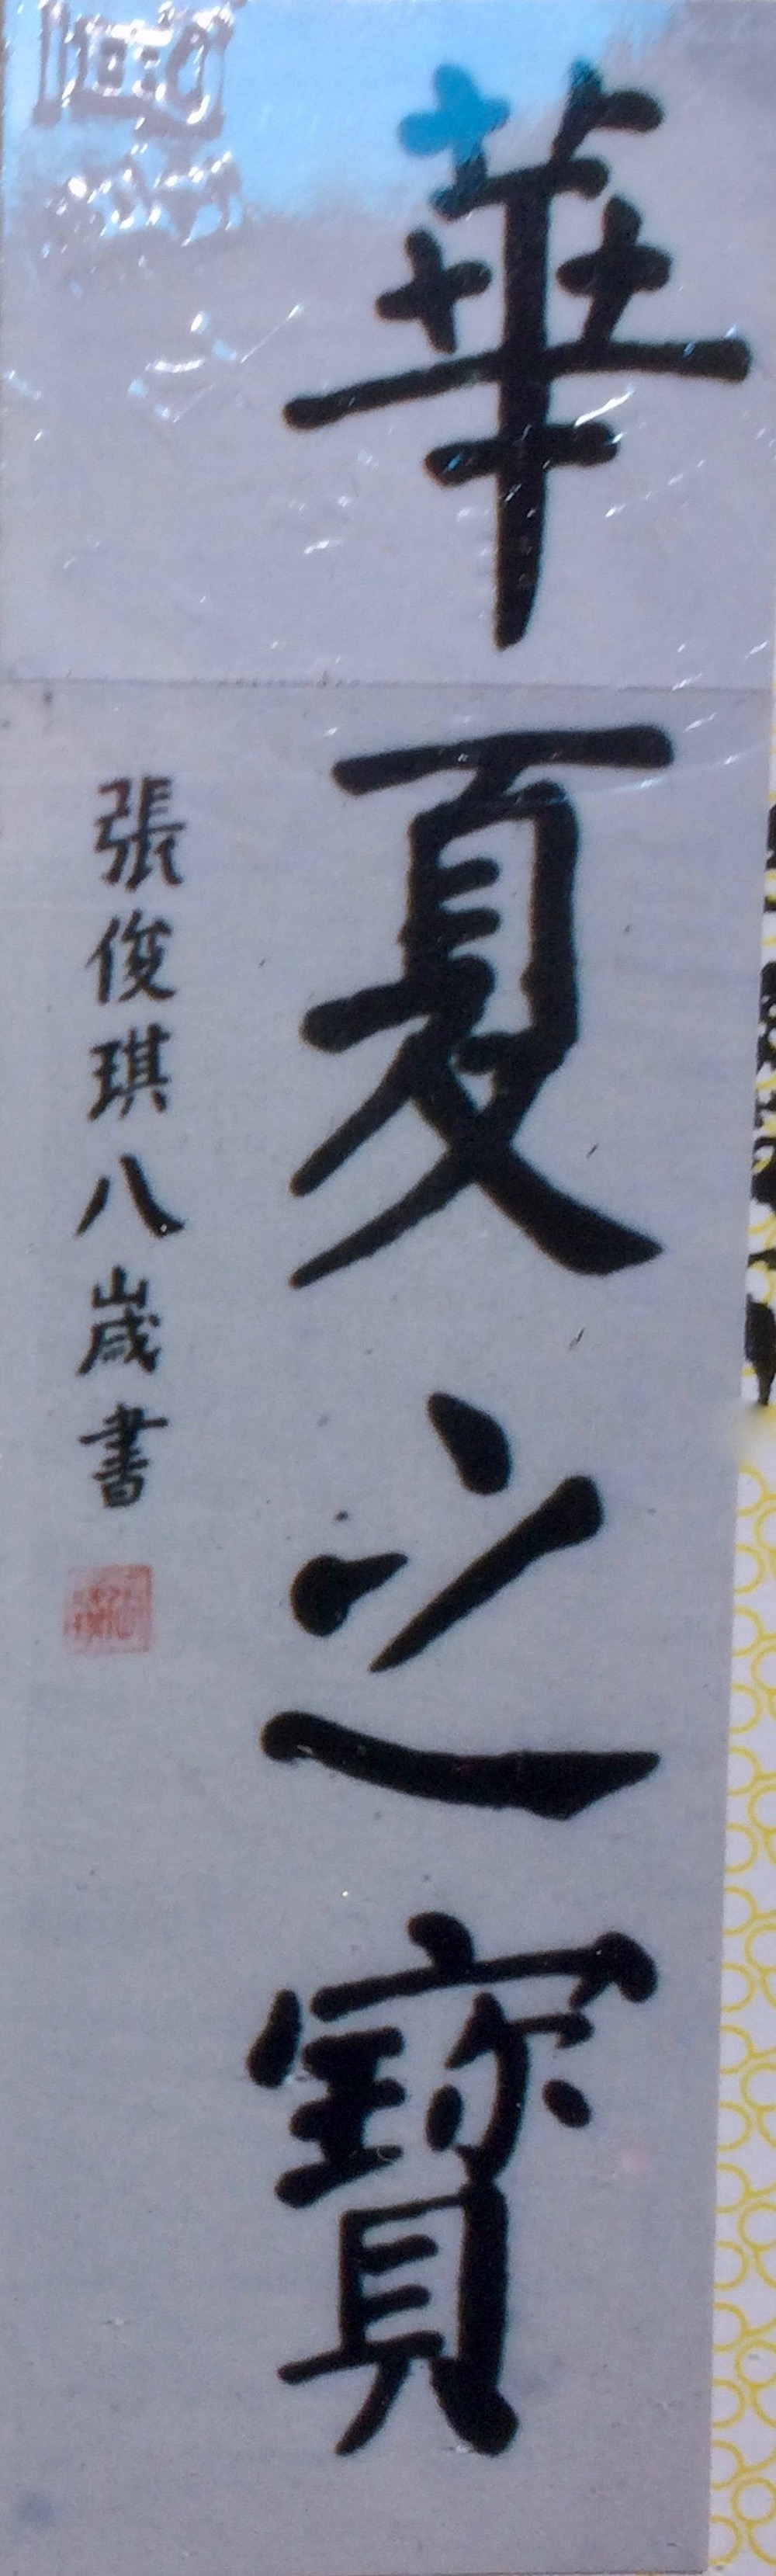 華夏之寶
張俊琪八歲書